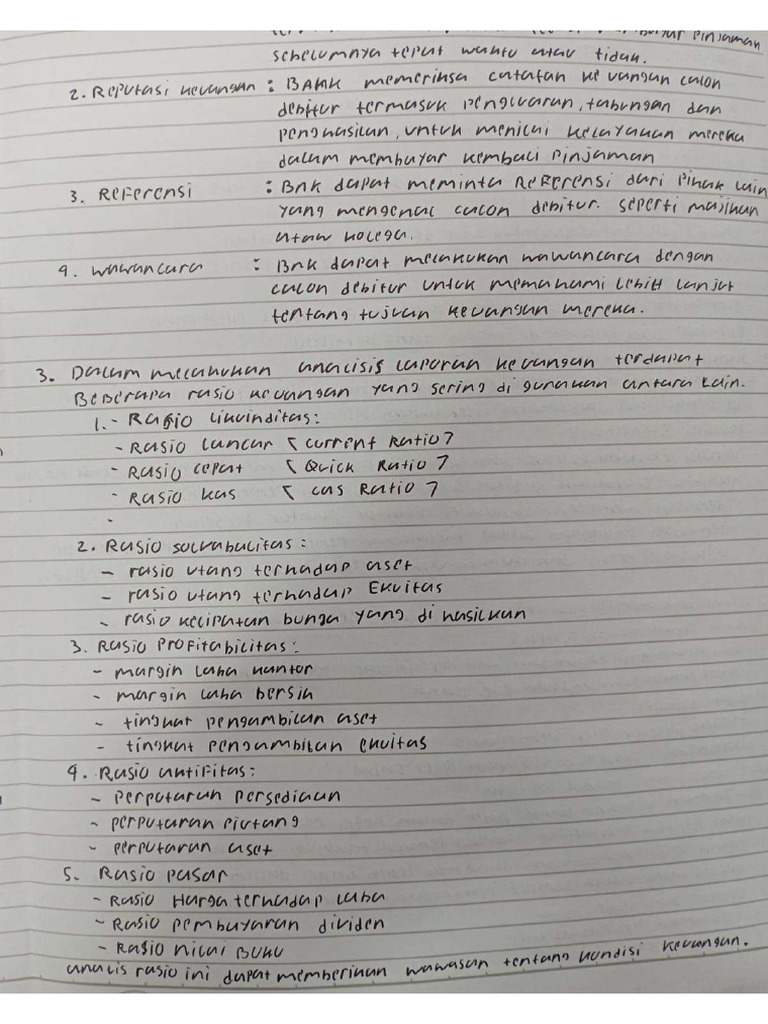 pinjaman
sebelumnya tepat waktu atau tidak.
2. Reputasi keuangan : BANK memeriksa catatan keuangan calon
debitur termasuk pengeluaran, tabungan dan
penghasilan, untuk menilai kelayakan mereka
dalam membayar kembali pinjaman
3. Referensi : Bnk dapat meminta Referensi dari pihak lain
yang mengenal calon debitur. seperti majikan
ataw kolega.
4. wawancara : Bnk dapat melakukan wawancara dengan
calon debitur untuk memahami lebih lanjut
tentang tujuan keuangan mereka.
3. Dalam melakukan analisis laporan keuangan terdapat
Beberapa rasio keuangan yang sering di gunakan antara lain.
1. - Rasio likuinditas:
- Rasio lancar ( current Ratio )
- Rasio cepat ( Quick Ratio )
- Rasio kas ( cas Ratio )
-
2. Rasio solvabalitas :
- rasio utang terhadap aset
- rasio utang terhadap Ekuitas
- rasio kelipatan bunga yang di hasilkan
3. Rasio Profitabilitas :
- margin laba kantor
- margin laba bersih
- tingkat pengambilan aset
- tingkat pengambilan ekuitas
4. Rasio aktifitas :
- perputaran persediaan
- perputaran piutang
- perputaran aset
5. Rasio pasar
- Rasio Harga terhadap laba
- Rasio pembayaran dividen
- Rasio nilai Buku
analis rasio ini dapat memberikan wawasan tentang kondisi keuangan.